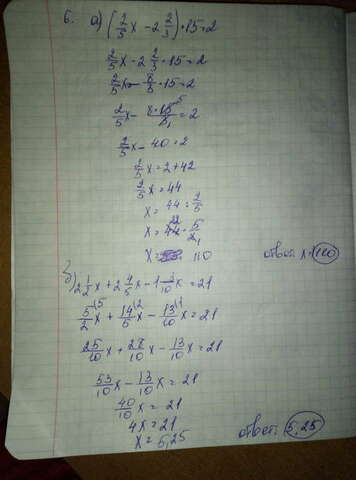 6. а) (2/5 x - 2 2/3) · 15 = 2
2/5 x - 2 2/3 · 15 = 2
2/5 x - 8/3 · 15 = 2
2/5 x - 8·15/3 = 2
2/5 x - 40 = 2
2/5 x = 2 + 42
2/5 x = 44
x = 44 : 2/5
x = 44 · 5/2
x = 110
ответ x = 110
б) 2 1/2 x + 2 4/5 x - 1 3/10 x = 21
5/2 x + 14/5 x - 13/10 x = 21
25/10 x + 28/10 x - 13/10 x = 21
53/10 x - 13/10 x = 21
40/10 x = 21
4x = 21
x = 5,25
ответ: 5,25